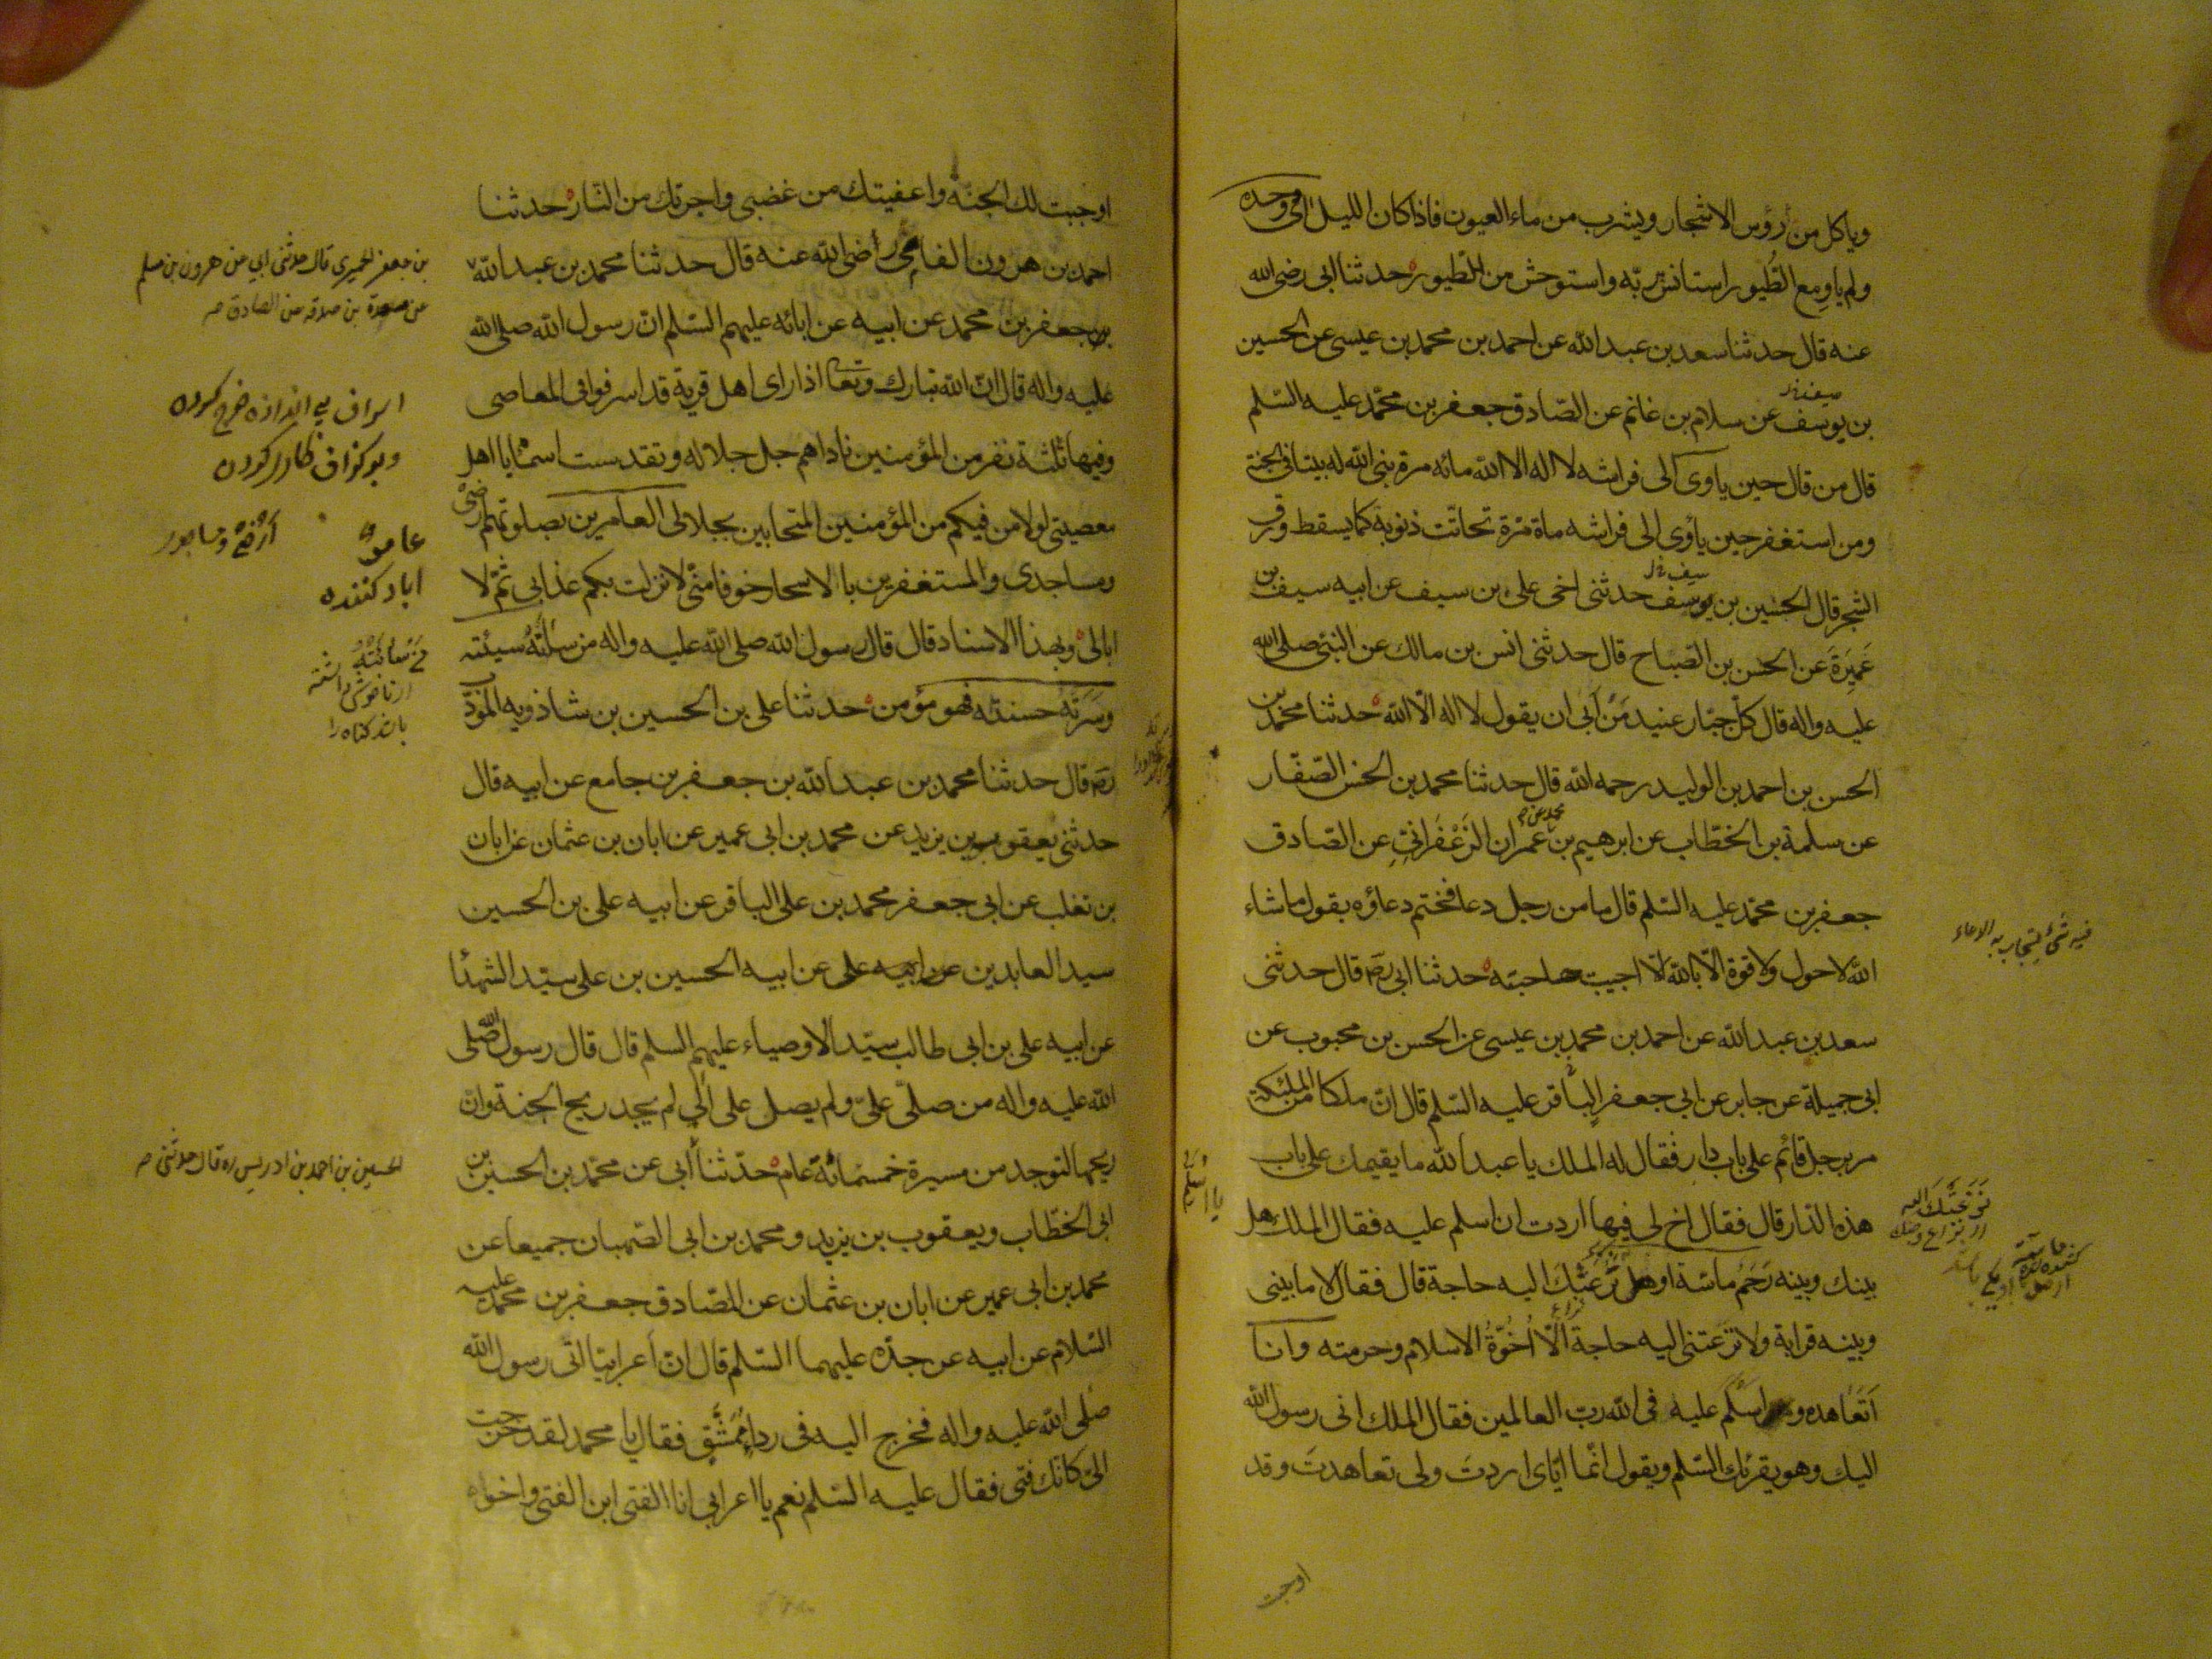 وياكل من رؤس الاشجار ويشرب من ماء العيون فاذا كان الليل اوى وحده
ولم ياو مع الطُّيور استانس بربّه واستوحش من الطّيور حدثنا ابى رضى الله
عنه قال حدثنا سعد بن عبد الله عن احمد بن محمد بن عيسى عن الحسين
بن يوسف عن سلام بن غانم عن الصّادق جعفر بن محمّد عليه السّلم
قال من قال حين ياوى الى فراشه لا اله الا الله مائه مرة بنى الله له بيتا فى الجنة
ومن استغفر حين يأوى الى فراشه ماة مرّة تحاتّت ذنوبه كما يسقط ورق
الشجر قال الحسين بن يوسف حدثنى اخى على بن سيف عن ابيه سيف بن
عَمِيَرةَ عن الحسن بن الصّباح قال حدثنى انس بن مالك عن النبّى صلى الله
عليه واله قال كلّ جبّار عنيد مَنْ اَبى ان يقول لا اله الّا الله حدثنا محمد بن
الحسن بن احمد بن الوليد رحمه الله قال حدثنا محمد بن الحسن الصّفّار
عن سلمة بن الخطّاب عن ابرهيم بن عمران الزَعْفَرانىِّ عن الصّادق
جعفر بن محمّد عليه السّلم قال ما من رجل دعا فختم دعاؤه بقول ما شاء
الله لا حول ولا قوة الّا بالله الّا اجيب صاحبته حدثنا ابى رَه قال حدثنى
سعد بن عبد الله عن احمد بن محمد بن عيسى عن الحسن بن محبوب عن
ابى جميلة عن جابر عن ابى جعفر الباقر عليه السّلم قال انّ ملكا من الملئكة
مر برجل قائم على باب دار فقال له الملك يا عبد الله ما يقيمك على باب
هذه الدّار قال فقال اخ لى فيها اردت ان اسلم عليه فقال الملك هل
بينك وبينه رَحَمُ ماسّة او هل نَزَعَتْكَ اليه حاجة قال فقال لا ما بينى
وبينه قرابة ولا نزعتنى اليه حاجة اَلّا اُخُوّةُ الاسلام وحرمته وانا
اَتَعَاهده و اسَلّم عليه فى الله ربّ العالمين فقال الملك انى رسول الله
اليك وهو يقرئك السّلم ويقول انّما ايّاى اردتَ ولى تعاهدتَ وقد
اوجبت
فيه شئ
نَزَعَتْكَ اليه
اوجبت لك الجنّة واعفيتك من غضبى واجرتك من النّار حدثنا
احمد بن هرون الفامى رضى الله عنه قال حدثنا محمد بن عبد الله
بن جعفر بن محمد عن ابيه عن ابائه عليهم السّلم انّ رسول الله صلى الله
عليه واله قال انّ الله تبارك وتعا اذا راى اهل قرية قد اسرفوا فى المعاصى
وفيها ثلثة نفر من المؤمنين ناداهم جل جلاله وتقدست اسمائه يا اهل
معصيتى لولا من فيكم من المؤمنين المتحابين بجلالى العامرين بصلوتهم ارضى
ومساجدى والمستغفرين با الاسحار خوفا منّى لانزلت بكم عذابى ثمّ لا
ابالى وبهذا الاسناد قال قال رسول الله صلى الله عليه واله من سَائَتْهُ سيئته
وسَرّته حسنته فهو مؤمن حدثنا على بن الحسين بن شاذويه المؤذّب
رَه قال حدثنا محمد بن عبد الله بن جعفر بن جامع عن ابيه قال
حدثنى يعقوب بن يزيد عن محمد بن ابى عمير عن ابان بن عثمان عن ابان
بن تغلب عن ابى جعفر محمد بن على الباقر عن ابيه على بن الحسين
سيد العابدين عن ابيه الحسين بن على سيّد الشهدا
عن ابيه على بن ابى طالب سيّد الاوصياء عليهم السلم قال قال رسول الله صلى
الله عليه واله من صلّى علىّ ولم يصل على الى لم يجد ريح الجنة وانّ
ريحها لتوجد من مسيرة خمسمائة عام حدّثنا أبى عن محمّد بن الحسين بن
ابى الخطّاب ويعقوب بن يزيد ومحمد بن ابى الصّهبان جميعا عن
محمد بن ابى عمير عن ابان بن عثمان عن الصّادق جعفر بن محمد عليه
السّلام عن ابيه عن جدّه عليهما السّلم قال انّ أعرابيّا اتى رسول الله
صلى الله عليه واله فخرج اليه فى رداءٍ مُمَشَّقٍ فقال يا محمد لقد خرجت
الىّ كانّك فتى فقال عليه السّلم نعم يا اعرابى انا الفتى ابن الفتى واخو
بن جعفر الحميرى قال حدثنى ابى عن هرون بن مسلم
عن مسعدة بن صدقه عن الصادق
اسراف بى اندازه خرج كردن
عامر
اباد كننده
سائَتْهُ
الحسين بن احمد بن ادريس ره قال حدثنى